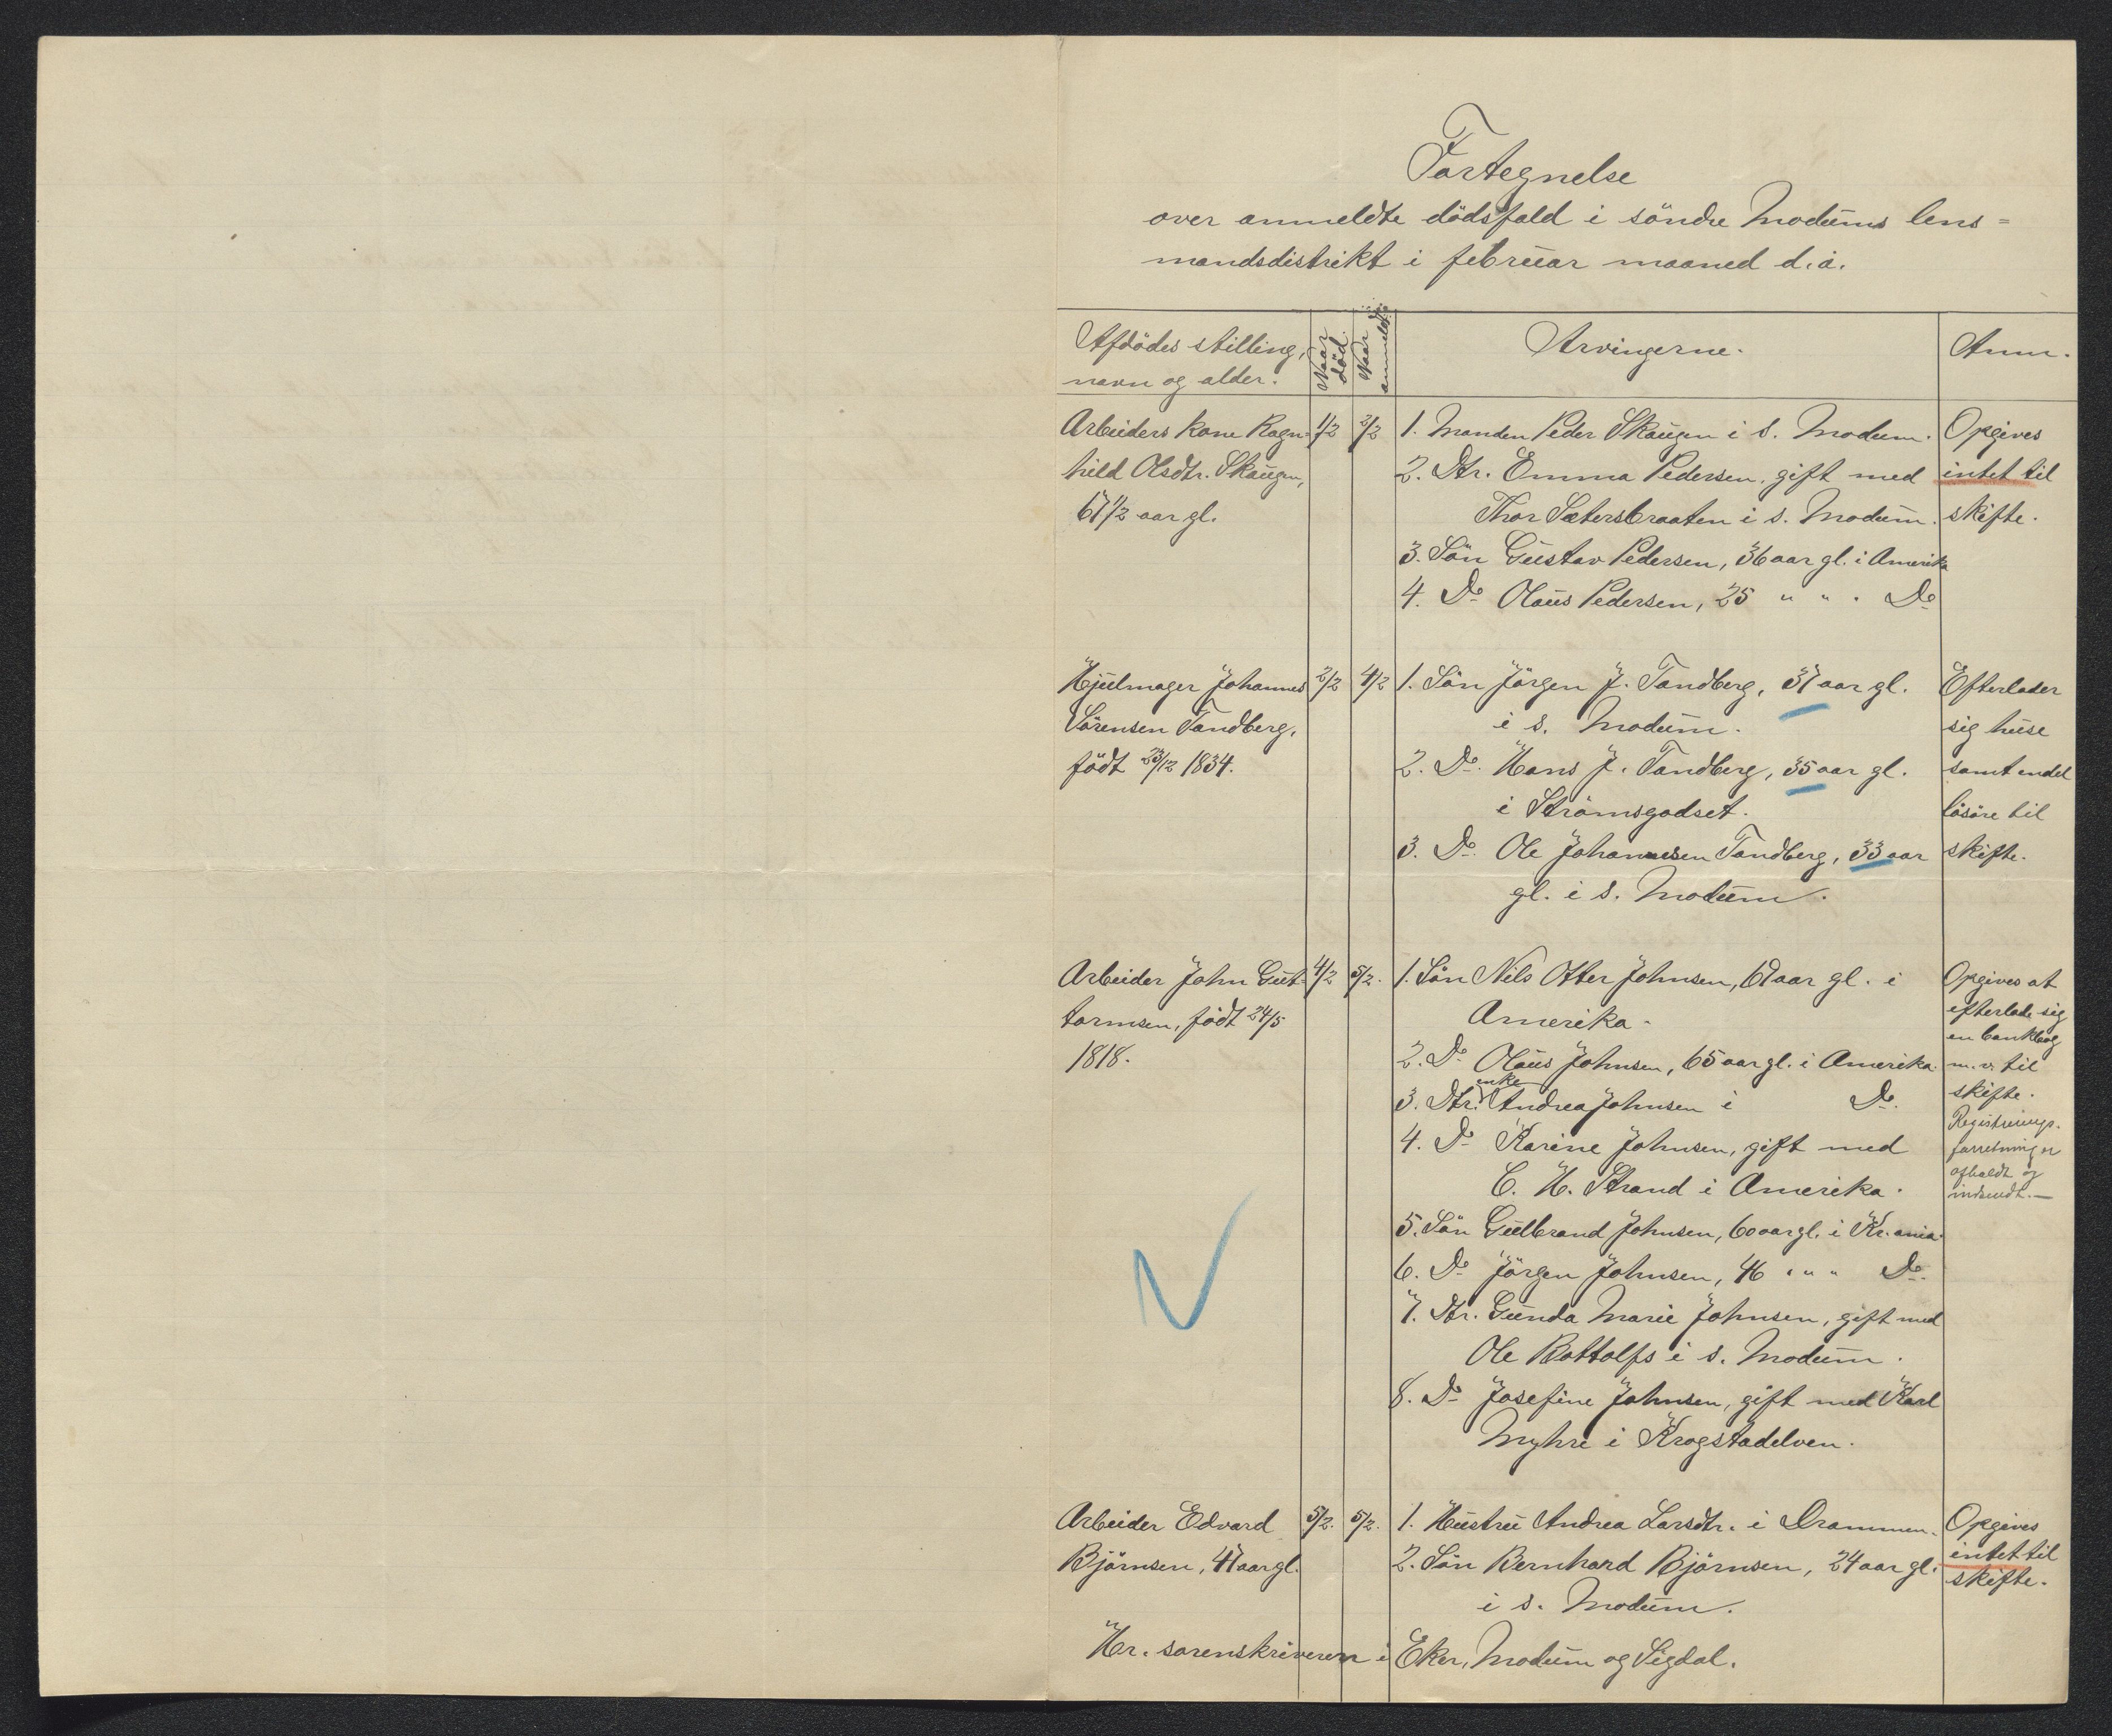 Fortegnelse
over anmeldte dödsfald i söndre Modums lens=
mandsdistrikt i februar maaned d. å.
Afdödes stilling,
navn og alder.
Naar död.
Naar anmeldt.
Arvingerne.
Anm.
Arbeiders kone Ragn=
hild Olsdtr. Skaugen,
67 1/2 aar gl.
1/2
2/2
1. Manden Peder Skaugen i s. Modum.
2. Dtr. Emma Pedersen, gift med
Thor Sætersbraaten i s. Modum.
3. Sön Gustav Pedersen, 36 aar gl. i Amerika
4. Do Olaus Pedersen, 25 " " " Do
Opgives
intet til
skifte.
Hjulmager Johannes
Sörensen Tandberg,
födt 23/12 1834.
2/2
4/2
1. Sön Jörgen J. Tandberg, 37 aar gl.
i s. Modum.
2. Do. Hans J. Tandberg, 35 aar gl.
i Strömsgodset.
3. Do. Ole Johannesen Tandberg, 33 aar
gl. i s. Modum.
Efterlader
sig huse
samt endel
lösöre til
skifte.
Arbeider John Gut=
tormsen, födt 24/5
1818.
4/2
5/2.
1. Sön Nils Otter Johnsen, 69 aar gl. i
Amerika.
2. Do Olaus Johnsen, 65 aar gl. i Amerika.
3. Dtr. enke Andrea Johnsen i Do.
4. Do Karine Johnsen, gift med
C. H. Strand i Amerika.
5. Sön Gulbrand Johnsen, 60 aar gl. i Kr.ania.
6. Do Jörgen Johnsen, 46 " " " Do.
7. Dtr. Gunda Marie Johnsen, gift med
Ole Bottolfs i s. Modum.
8. Do Josefine Johnsen, gift med Karl
Myhre i Krogstadelven.
Opgives at
efterlade sig
en bankbog
m. v. til
skifte.
Registrerings-
forretning er
afholdt og
indsendt.—
Arbeider Edvard
Björnsen, 47 aar gl.
5/2.
5/2.
1. Hustru Andrea Larsdtr. i Drammen.
2. Sön Bernhard Björnsen, 24 aar gl.
i s. Modum.
Opgives
intet til
skifte.
Hr. sorenskriveren i Eker, Modum og Sigdal.